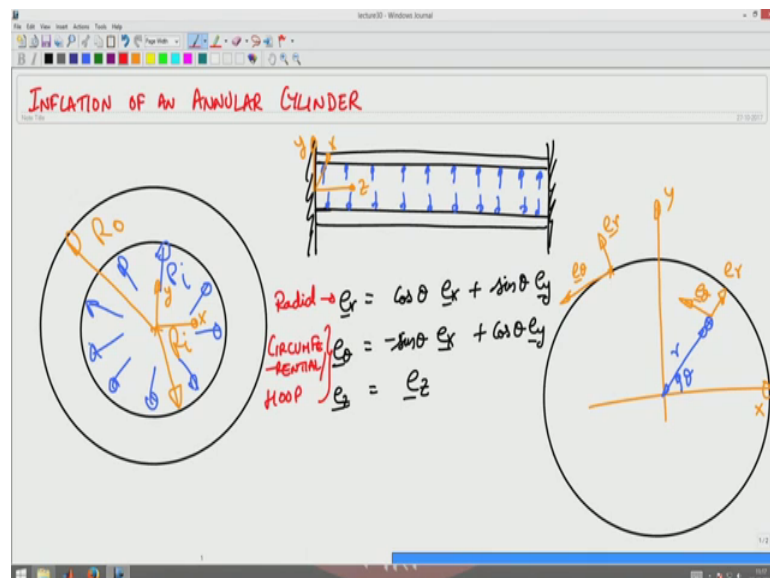 lecture30 - Windows Journal
File Edit View Insert Actions Tools Help
Page Width
B I
INFLATION OF AN ANNULAR CYLINDER
Note Title
27-10-2017
y x
z
Ro
Pi
y
x
Ri
Radial → er = cosθ ex + sinθ ey
CIRCUMFE
-RENTIAL/
HOOP
eθ = -sinθ ex + cosθ ey
ez = ez
y
er
eθ
er
eθ
r
θ
x
1/2
1